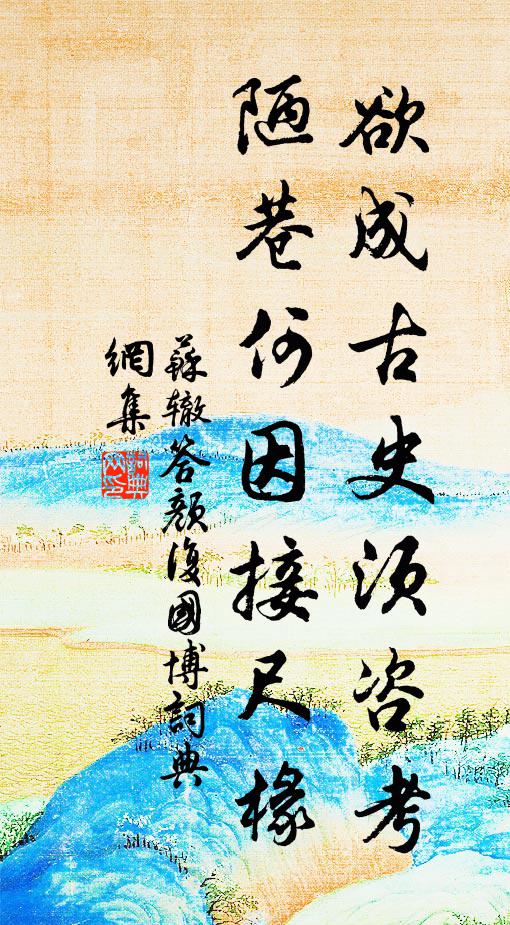 欲成古史須咨考
陋巷何因接尺椽
蘇轍答顏復國博詞典
網集
詞典